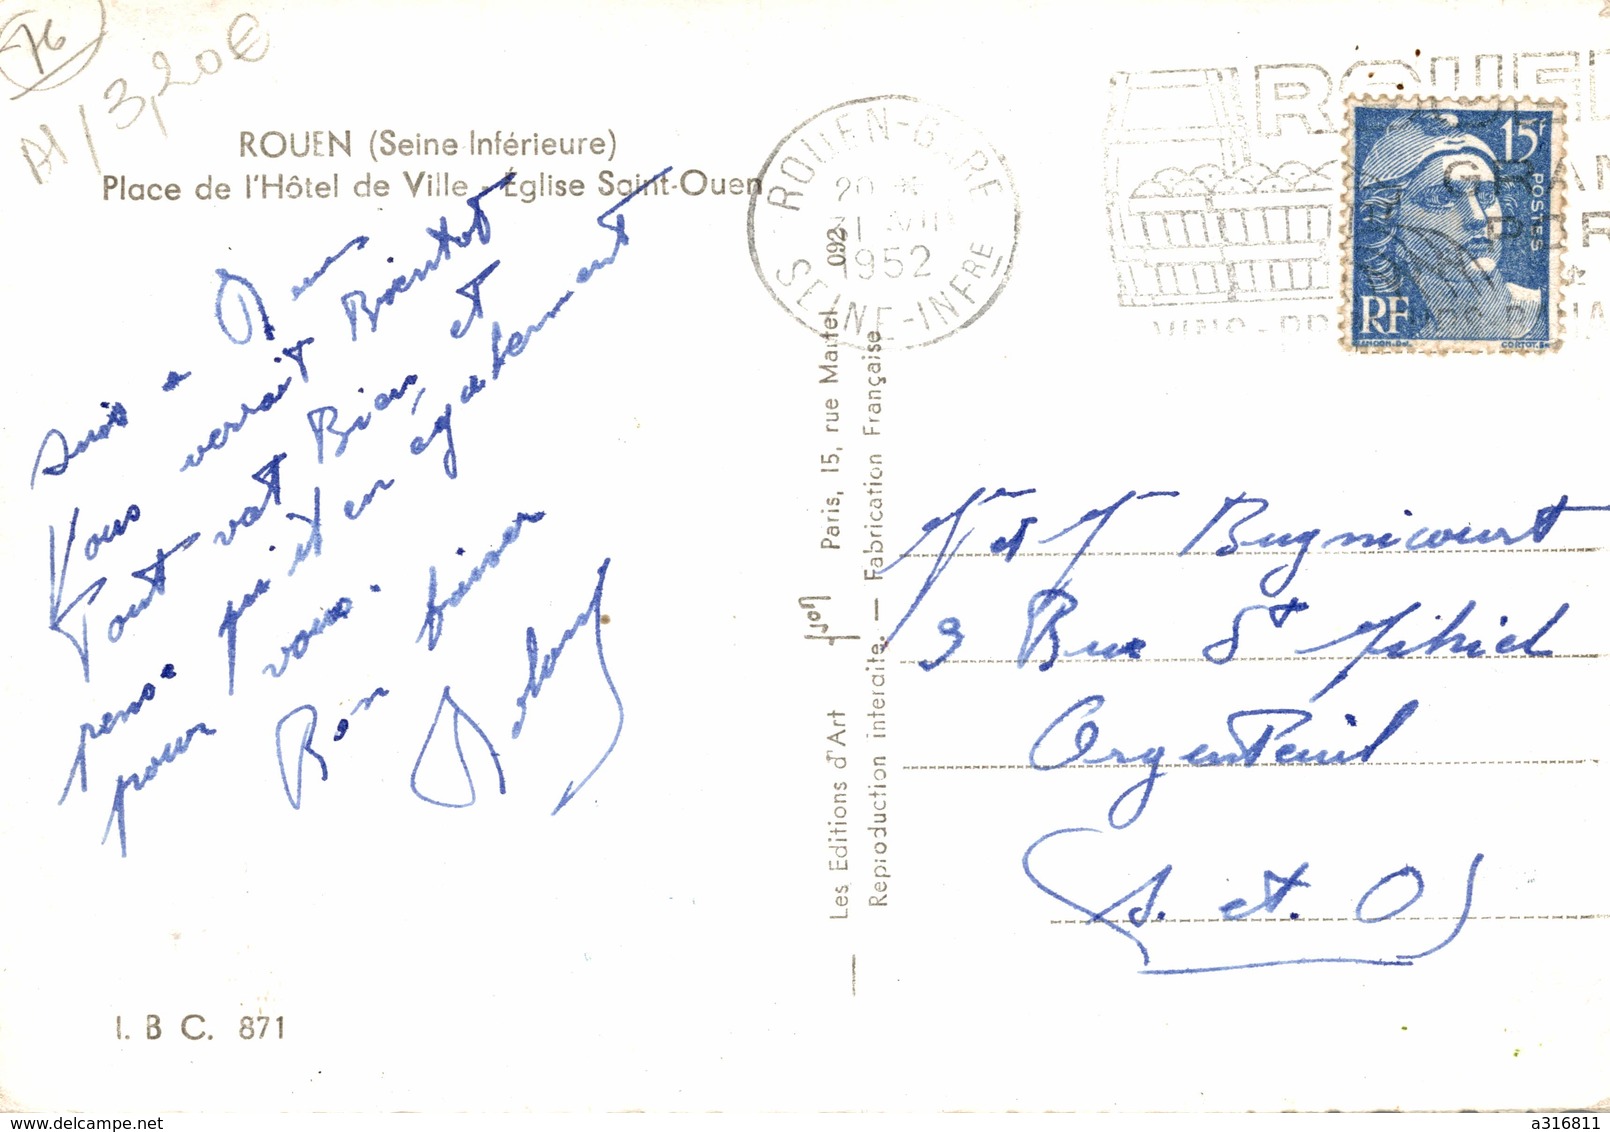 76
3,20€
ROUEN (Seine-Inférieure)
Place de l'Hôtel de Ville - Église Saint-Ouen
suis à
Vous verrait Bientot
Tout vat Bien, et
pense qu'il en également
pour vous.
Bon baiser
I. B C. 871
Les Editions d'Art yvon Paris, 15, rue Martel
Reproduction interdite. — Fabrication Française
ROUEN-GARE
20
1952
SEINE-INFRE
ROUEN
15F
POSTES
RF
GANDON.Del.
CORTOT.Sc
Mr et M Bugnicourt
9 Rue St Mihiel
Argenteuil
S. et. O
delcampe.net
a316811